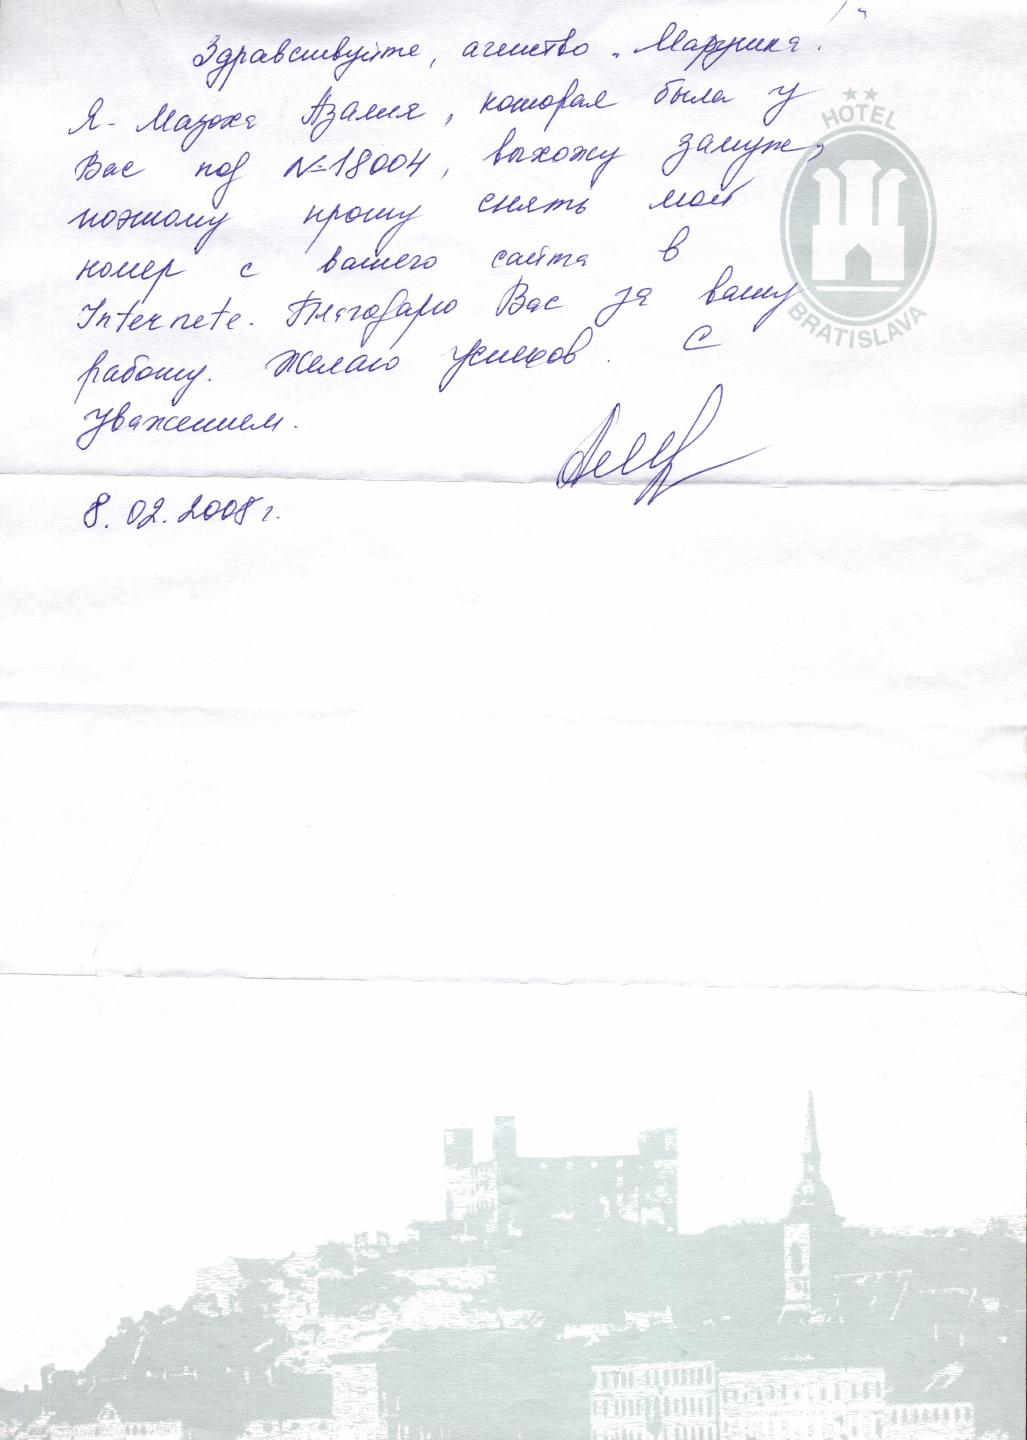 Здравствуйте, агенство „Маруника!"
Я - Мазоха Азалия, которая была у
Вас под №18004, выхожу замуж,
поэтому прошу снять мой
номер с вашего сайта в
Internete. Благодарю Вас за вашу
работу. Желаю успехов. С
уважением.
8.02.2008 г.
HOTEL
BRATISLAVA